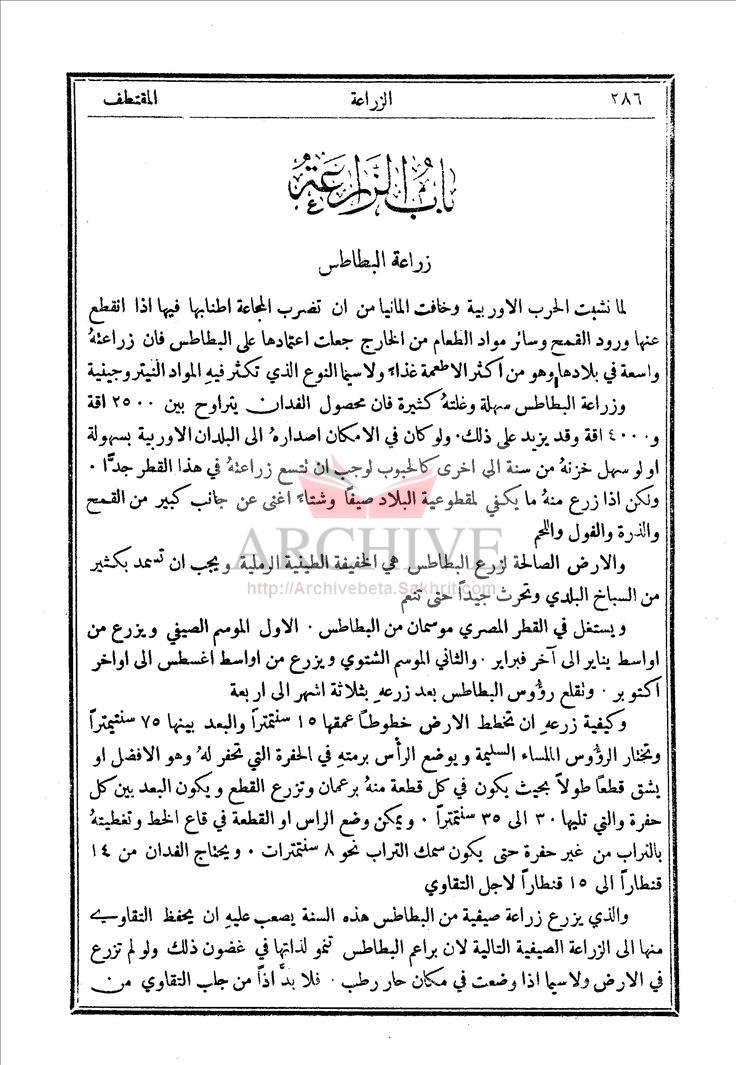 ٢٨٦ الزراعة المقتطف
باب الزراعة
زراعة البطاطس
لما نشبت الحرب الاوربية وخافت المانيا من ان تضرب المجاعة اطنابها فيها اذا انقطع
عنها ورود القمح وسائر مواد الطعام من الخارج جعلت اعتمادها على البطاطس فان زراعتهُ
واسعة في بلادها وهو من اكثر الاطعمة غذاءً ولاسيما النوع الذي تكثر فيهِ المواد النيتروجينية
وزراعة البطاطس سهلة وغلتهُ كثيرة فان محصول الفدان يتراوح بين ٢٥٠٠ اقة
و٤٠٠٠ اقة وقد يزيد على ذلك. ولو كان في الامكان اصداره الى البلدان الاوربية بسهولة
او لو سهل خزنهُ من سنة الى اخرى كالحبوب لوجب ان نتسع زراعتهُ في هذا القطر جدًّا .
ولكن اذا زرع منهُ ما يكفي لمقطوعية البلاد صيفًا وشتاءً اغنى عن جانب كبير من القمح
والذرة والفول واللحم
ARCHIVE
والارض الصالحة لزرع البطاطس هي الخفيفة الطينية الرملية ويجب ان تسمد بكثير
http://Archivebeta.Sakhrit.com
من السباخ البلدي وتحرث جيداً حتى تنعم
ويستغل في القطر المصري موسمان من البطاطس . الاول الموسم الصيفي ويزرع من
اواسط يناير الى آخر فبراير . والثاني الموسم الشتوي ويزرع من اواسط اغسطس الى اواخر
اكتوبر . ونقلع رؤُوس البطاطس بعد زرعهِ بثلاثة اشهر الى اربعة
وكيفية زرعهِ ان تخطط الارض خطوطًا عمقها ١٥ سنتمتراً والبعد بينها ٧٥ سنتيمتراً
وتختار الرؤُوس الملساء السليمة ويوضع الرأس برمتهِ في الحفرة التي تحفر لهُ وهو الافضل او
يشق قطعًا طولاً بحيث يكون في كل قطعة منهُ برعمان وتزرع القطع ويكون البعد بين كل
حفرة والتي تليها ٣٠ الى ٣٥ سنتمتراً . ويمكن وضع الراس او القطعة في قاع الخط وتغطيتهُ
بالتراب من غير حفرة حتى يكون سمك التراب نحو ٨ سنتمترات . ويحتاج الفدان من ١٤
قنطاراً الى ١٥ قنطاراً لاجل التقاوي
والذي يزرع زراعة صيفية من البطاطس هذه السنة يصعب عليهِ ان يحفظ التقاوي
منها الى الزراعة الصيفية التالية لان براعم البطاطس تنمو لذاتها في غضون ذلك ولو لم تزرع
في الارض ولاسيما اذا وضعت في مكان حار رطب . فلا بدَّ اذاً من جلب التقاوي من